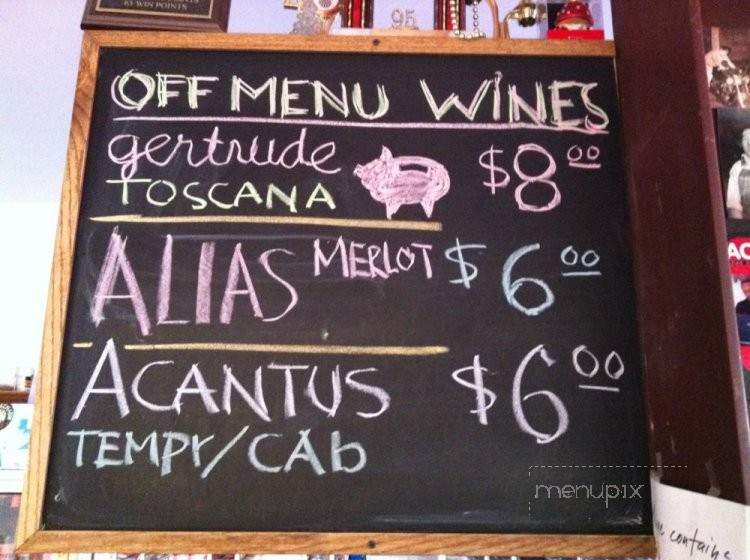 63 WIN POINTS
95
OFF MENU WINES
gertrude
TOSCANA
$8.00
ALIAS MERLOT $6.00
ACANTUS $6.00
TEMPr/CAb
menupix
contains